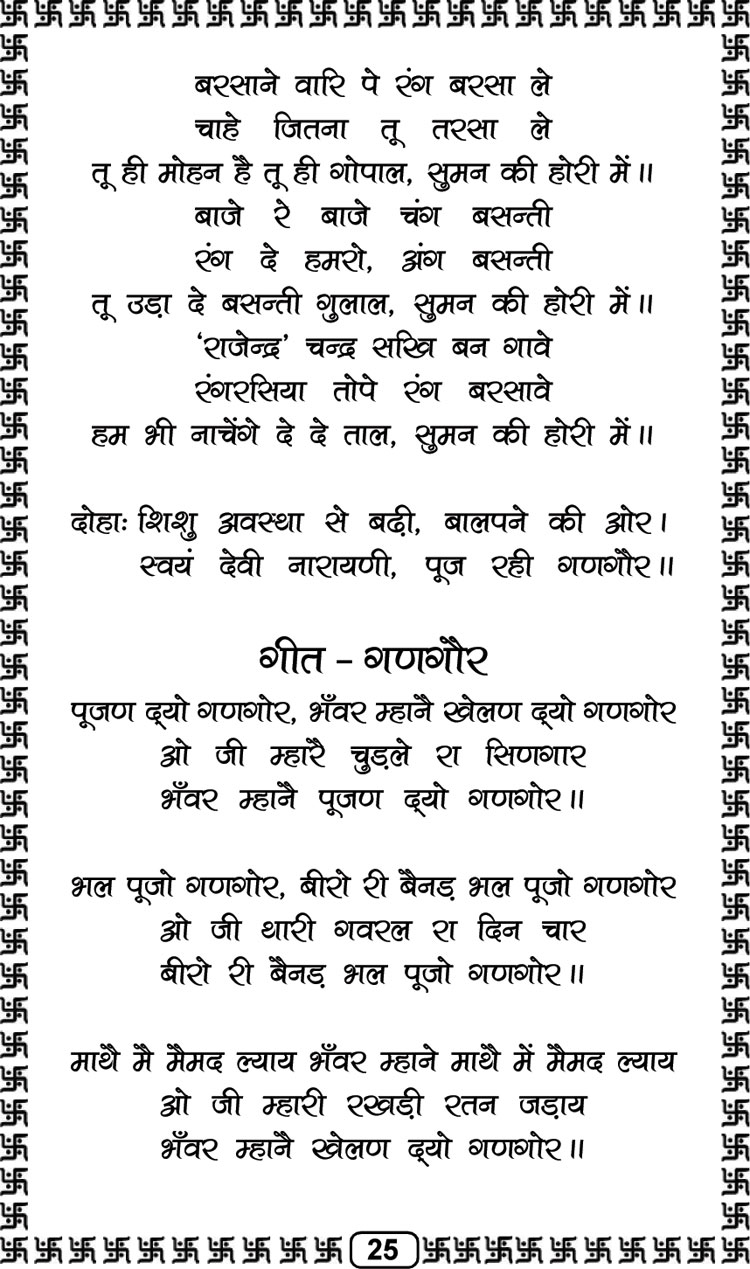 बरसाने वारि पे रंग बरसा ले
चाहे जितना तू तरसा ले
तू ही मोहन है तू ही गोपाल, सुमन की होरी में॥
बाजे रे बाजे चंग बसन्ती
रंग दे हमरो, अंग बसन्ती
तू उड़ा दे बसन्ती गुलाल, सुमन की होरी में॥
‘राजेन्द्र’ चन्द्र सखि बन गावे
रंगरसिया तोपे रंग बरसावे
हम भी नाचेंगे दे दे ताल, सुमन की होरी में॥
दोहाः शिशु अवस्था से बढ़ी, बालपने की ओर।
स्वयं देवी नारायणी, पूज रही गणगौर॥
गीत – गणगौर
पूजण द्‌यो गणगोर, भँवर म्हानै खेलण द्‌यो गणगोर
ओ जी म्हारै चुड़ले रा सिणगार
भँवर म्हानै पूजण द्‌यो गणगोर॥
भल पूजो गणगोर, बीरो री बैनड़ भल पूजो गणगोर
ओ जी थारी गवरल रा दिन चार
बीरो री बैनड़ भल पूजो गणगोर॥
माथै मै मैमद ल्याय भँवर म्हाने माथै में मैमद ल्याय
ओ जी म्हारी रखड़ी रतन जड़ाय
भँवर म्हानै खेलण द्‌यो गणगोर॥
25